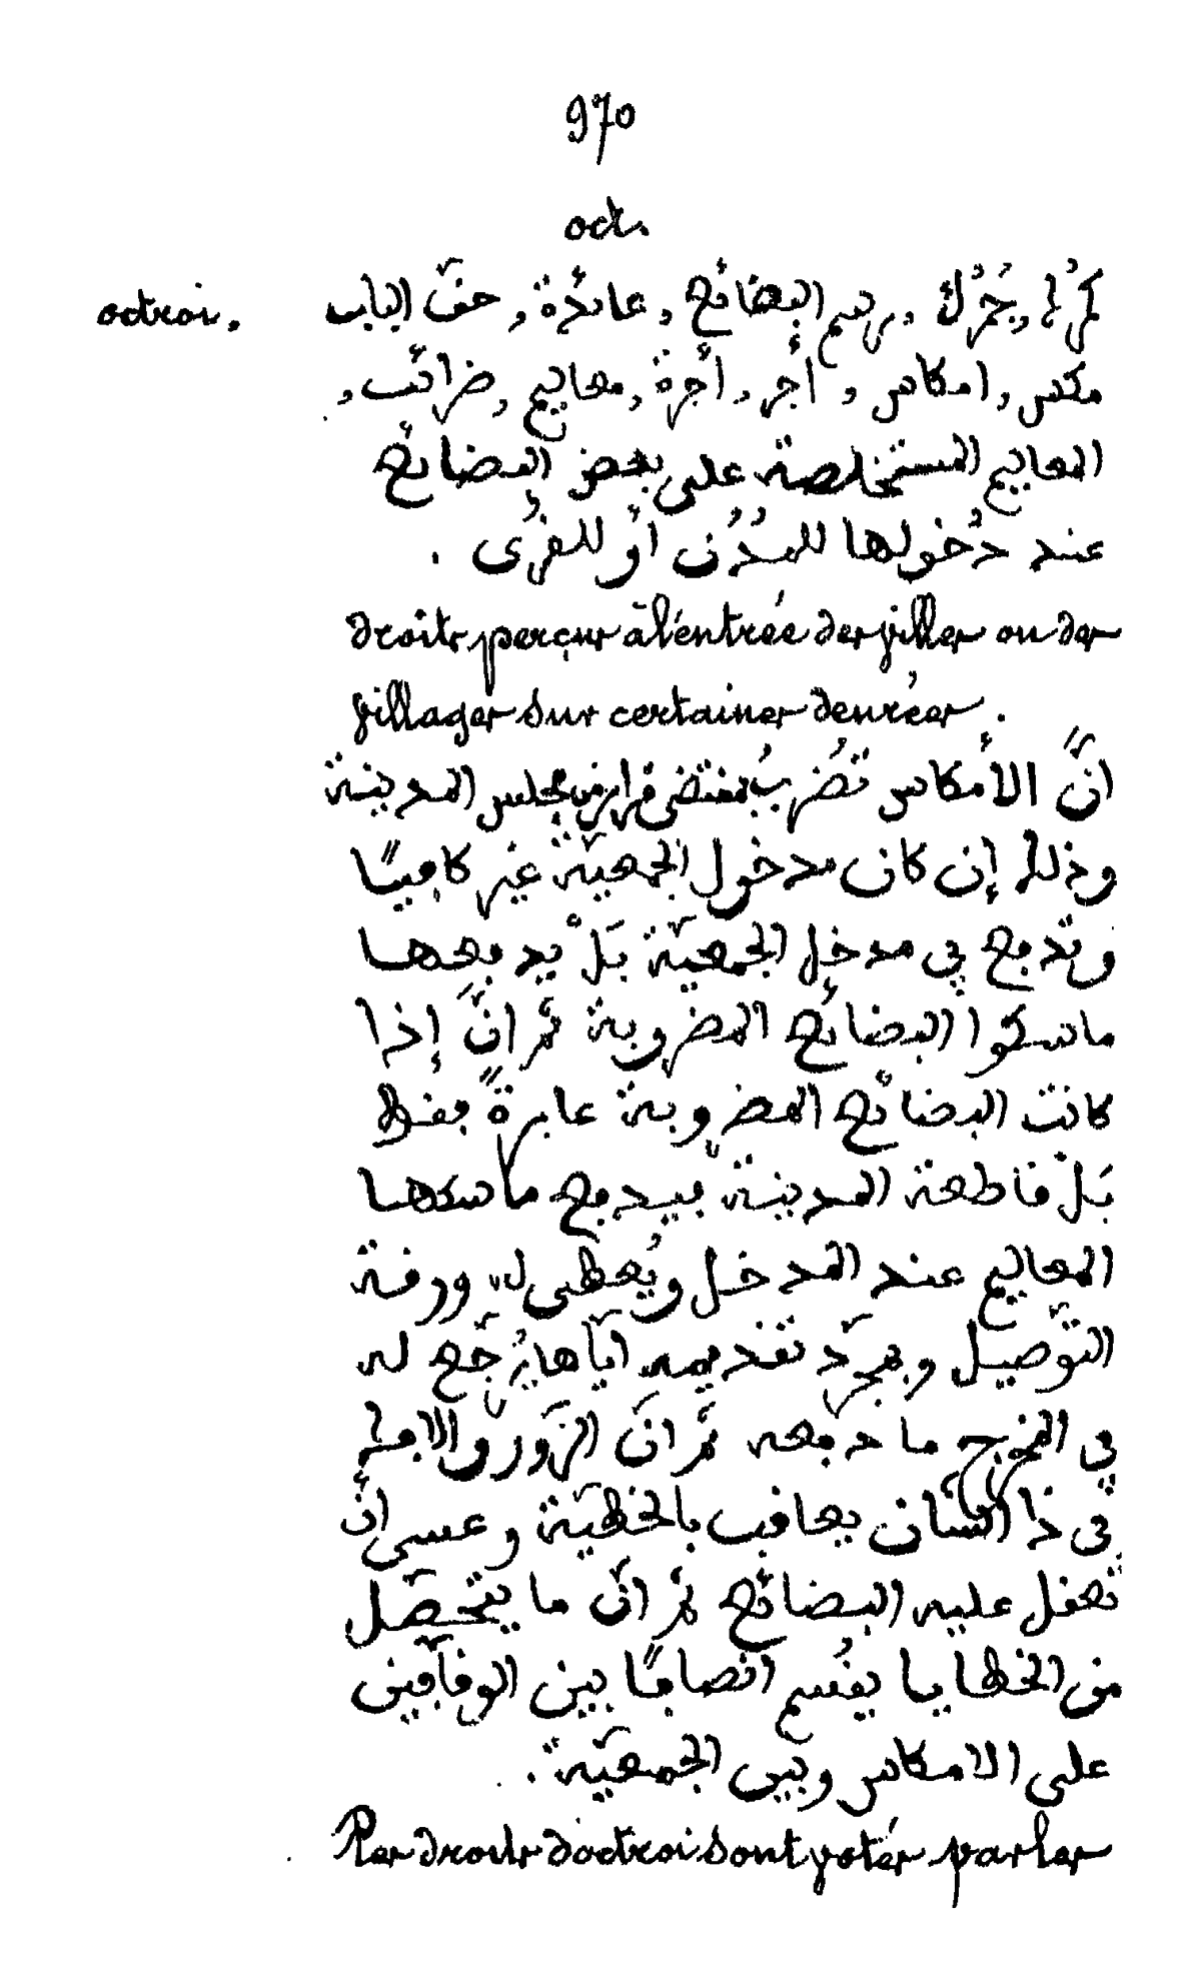 970
oct.
octroi.
كُمْرُك, جُمْرُك, رسم البضائع, عائدة, حقّ الباب
مكس, امكاس, أجر, أجرة, معاليم, ضرائب,
المعاليم المستخلصة على بعض البضائع
عند دُخولها للمُدُن أو للقُرى.
droits perçus à l'entrée des villes ou des
villages sur certaines denrées.
انّ الأمكاس تضرب بمقتضى قرار من مجلس المدينة
وذلك إن كان مدخول الجمعيّة غير كافيًا
وتدمج في مدخل الجمعيّة بَلْ يدفعها
ماسكوا البضائع المضروبة ثمّ انّ إذا
كانت البضائع المضروبة عابرةً فقط
بَلْ قاطعة المدينة فيدفع ماسكها
المعاليم عند المدخل ويُعطى له ورقة
التّوصيل وبمجرّد تقديمه ايّاها يُرجّع له
في المخرج ما دفعه ثمّ انّ الزّور والافك
في ذا الشّان يعاقب بالخطيّة وعسى انّ
تعقل عليه البضائع ثمّ انّ ما يتحصّل
من الخطايا يقسم انصافًا بين الوقّافين
على الامكاس وبين الجمعيّة.
Les droits d'octroi sont votés par les